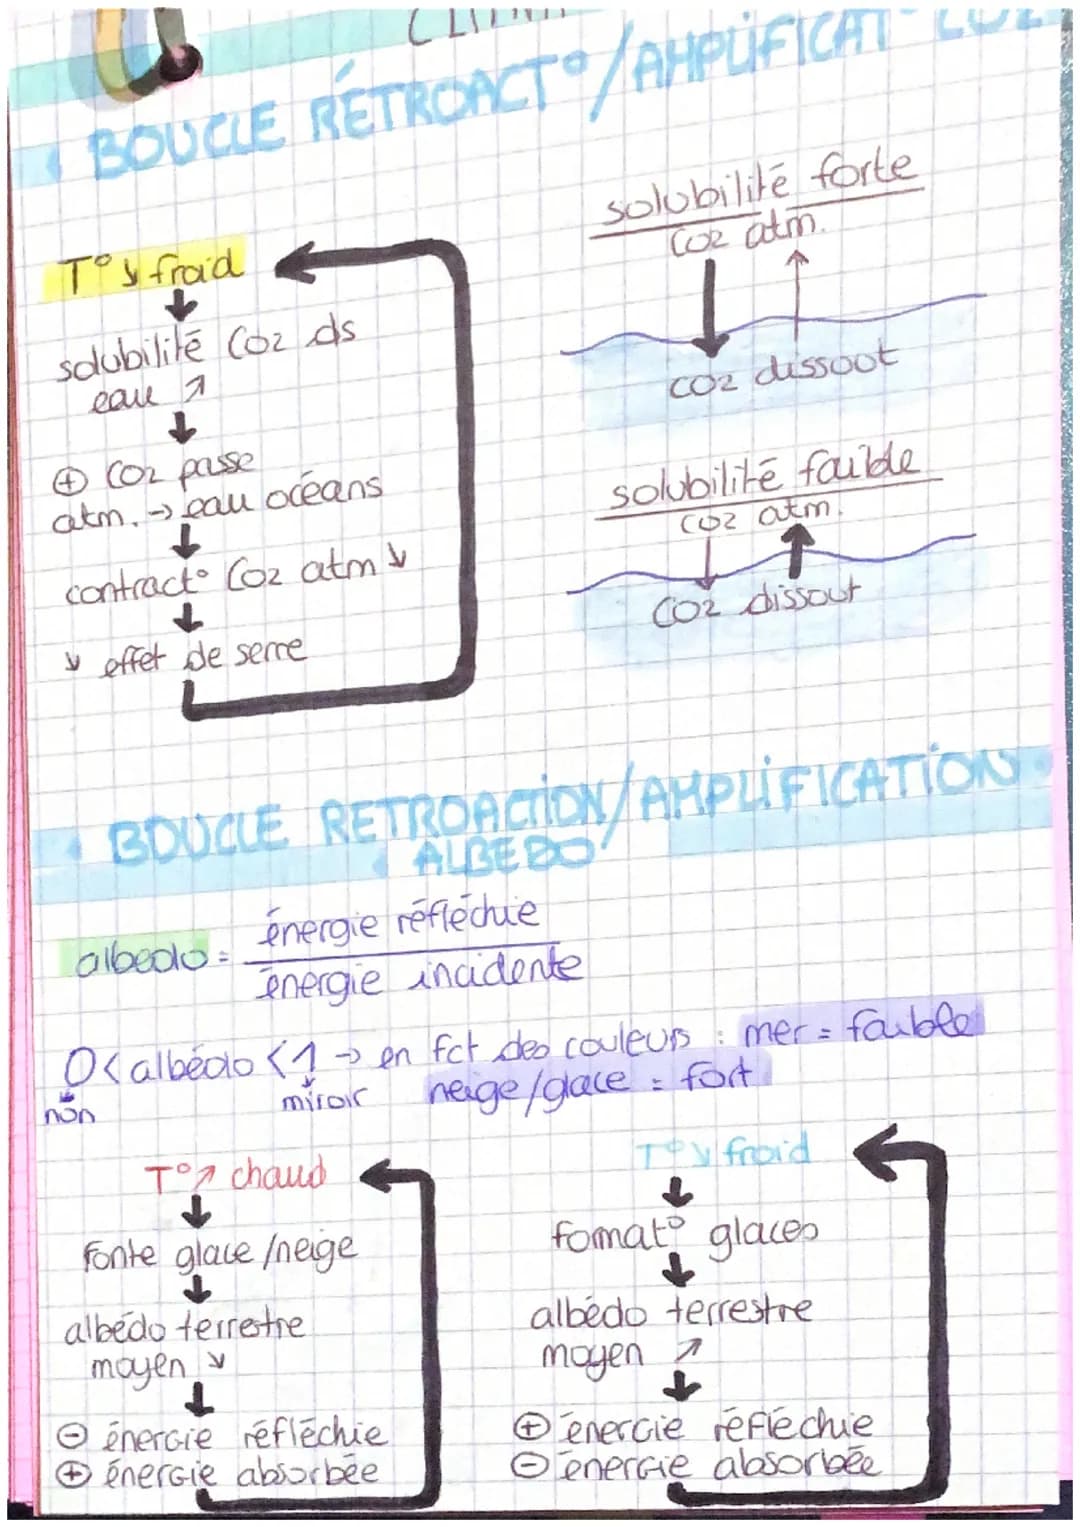 BOUCLE RÉTROACT°/AMPLIFICAT° CO2
T° ↘ froid
↓
solubilité CO2 ds
eau ↗
↓
⊕ CO2 passe
atm. → eau océans
↓
contract° CO2 atm ↘
↓
↘ effet de serre
solubilité forte
CO2 atm.
CO2 dissout
solubilité faible
CO2 atm.
CO2 dissout
• BOUCLE RETROACTION/AMPLIFICATION •
ALBEDO
albedo = énergie réfléchie
énergie incidente
0 < albédo < 1 → en fct des couleurs : mer = faible
non miroir neige/glace = fort
T° ↗ chaud
↓
fonte glace/neige
↓
albédo terrestre
moyen ↘
↓
⊖ énergie réfléchie
⊕ énergie absorbée
T° ↘ froid
↓
format° glaces
↓
albédo terrestre
moyen ↗
↓
⊕ énergie réfléchie
⊖ énergie absorbée